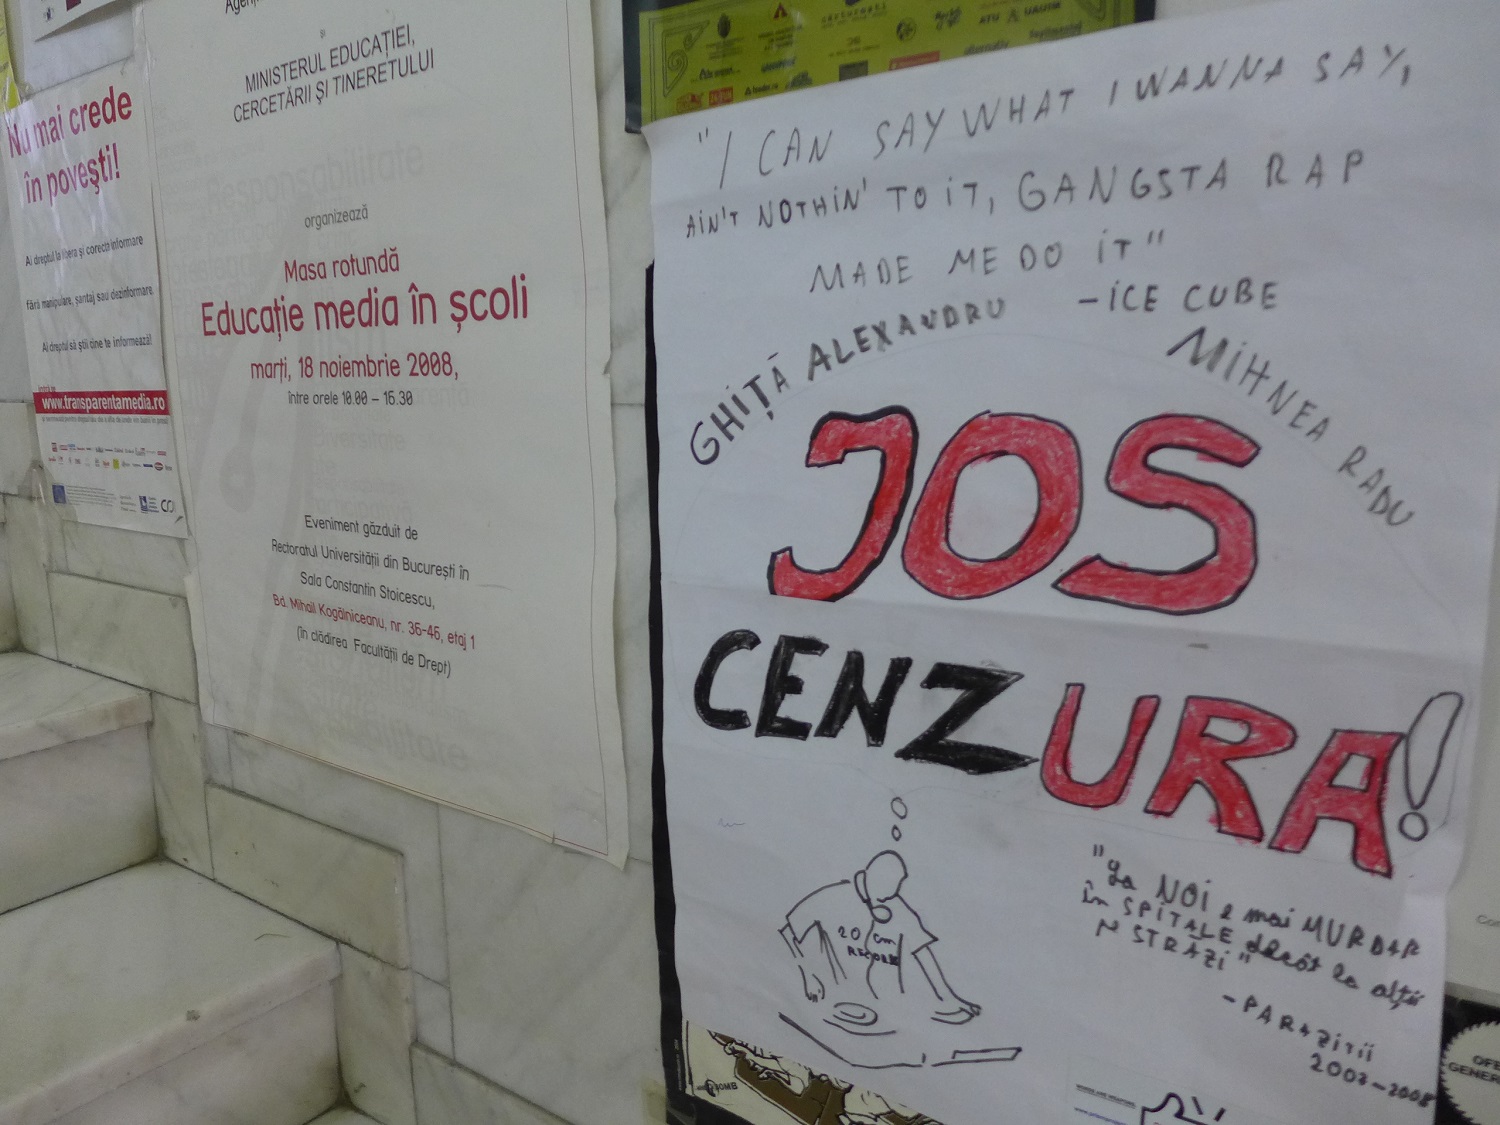 Nu mai crede
în povești!
Ai dreptul la libera și corecta informare
fără manipulare, șantaj sau dezinformare.
Ai dreptul să știi cine te informează!
www.transparentamedia.ro
și
MINISTERUL EDUCAȚIEI,
CERCETĂRII ŞI TINERETULUI
Responsabilitate
organizează
Masa rotundă
Educație media în școli
marți, 18 noiembrie 2008,
între orele 10.00 – 16.30
Eveniment găzduit de
Rectoratul Universității din București în
Sala Constantin Stoicescu,
Bd. Mihail Kogălniceanu, nr. 36-46, etaj 1
(în clădirea Facultății de Drept)
"I CAN SAY WHAT I WANNA SAY,
AIN'T NOTHIN' TO IT, GANGSTA RAP
MADE ME DO IT"
- ICE CUBE
GHIȚĂ ALEXANDRU
MIHNEA RADU
JOS
CENZURA!
20 cm
RECORDS
"La NOI e mai MURDAR
în SPITALE decât la alții
N STRĂZI"
- PARAZIȚII
2003-2008